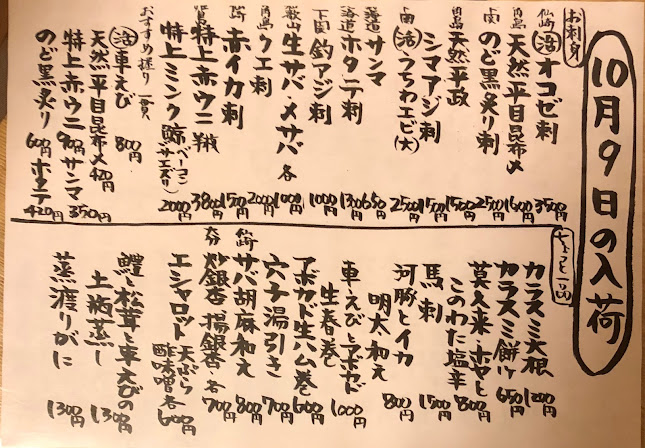 10月9日の入荷
お刺身
仙崎 活 オコゼ刺 3500円
角島 天然平目昆布〆 1600円
上関 のど黒炙り刺 2500円
角島 天然平政 1500円
シマアジ刺 1500円
上関 活 うちわエビ(大) 2500円
北海道 サンマ 650円
北海道 ホタテ刺 1300円
下関 釣アジ刺 1000円
生サバ・〆サバ 各 1000円
角島 クエ刺 2000円
赤イカ刺 1500円
特上赤ウニ 半板 3800円
特上ミンク鯨(ベーコン サエズリ) 2000円
おすすめ握り 一貫
活 車えび 800円
天然平目昆布〆 420円
特上赤ウニ 900円 サンマ 350円
のど黒炙り 600円 ホタテ 420円
ちょっと一品
カラスミ大根 1200円
カラスミ餅 650円
莫久来・ホヤと
このわた塩辛 800円
馬刺 1500円
河豚とイカ
明太和え 800円
車えびとアボカド
生春巻 1000円
アボカド生ハム巻 600円
穴子湯引き 700円
仙崎 サバ胡麻和え 800円
炒銀杏 揚銀杏 各 700円
エシャロット 天ぷら 酢味噌 各 600円
鱧と松茸と車えびの
土瓶蒸し 1300円
蒸渡りがに 1300円